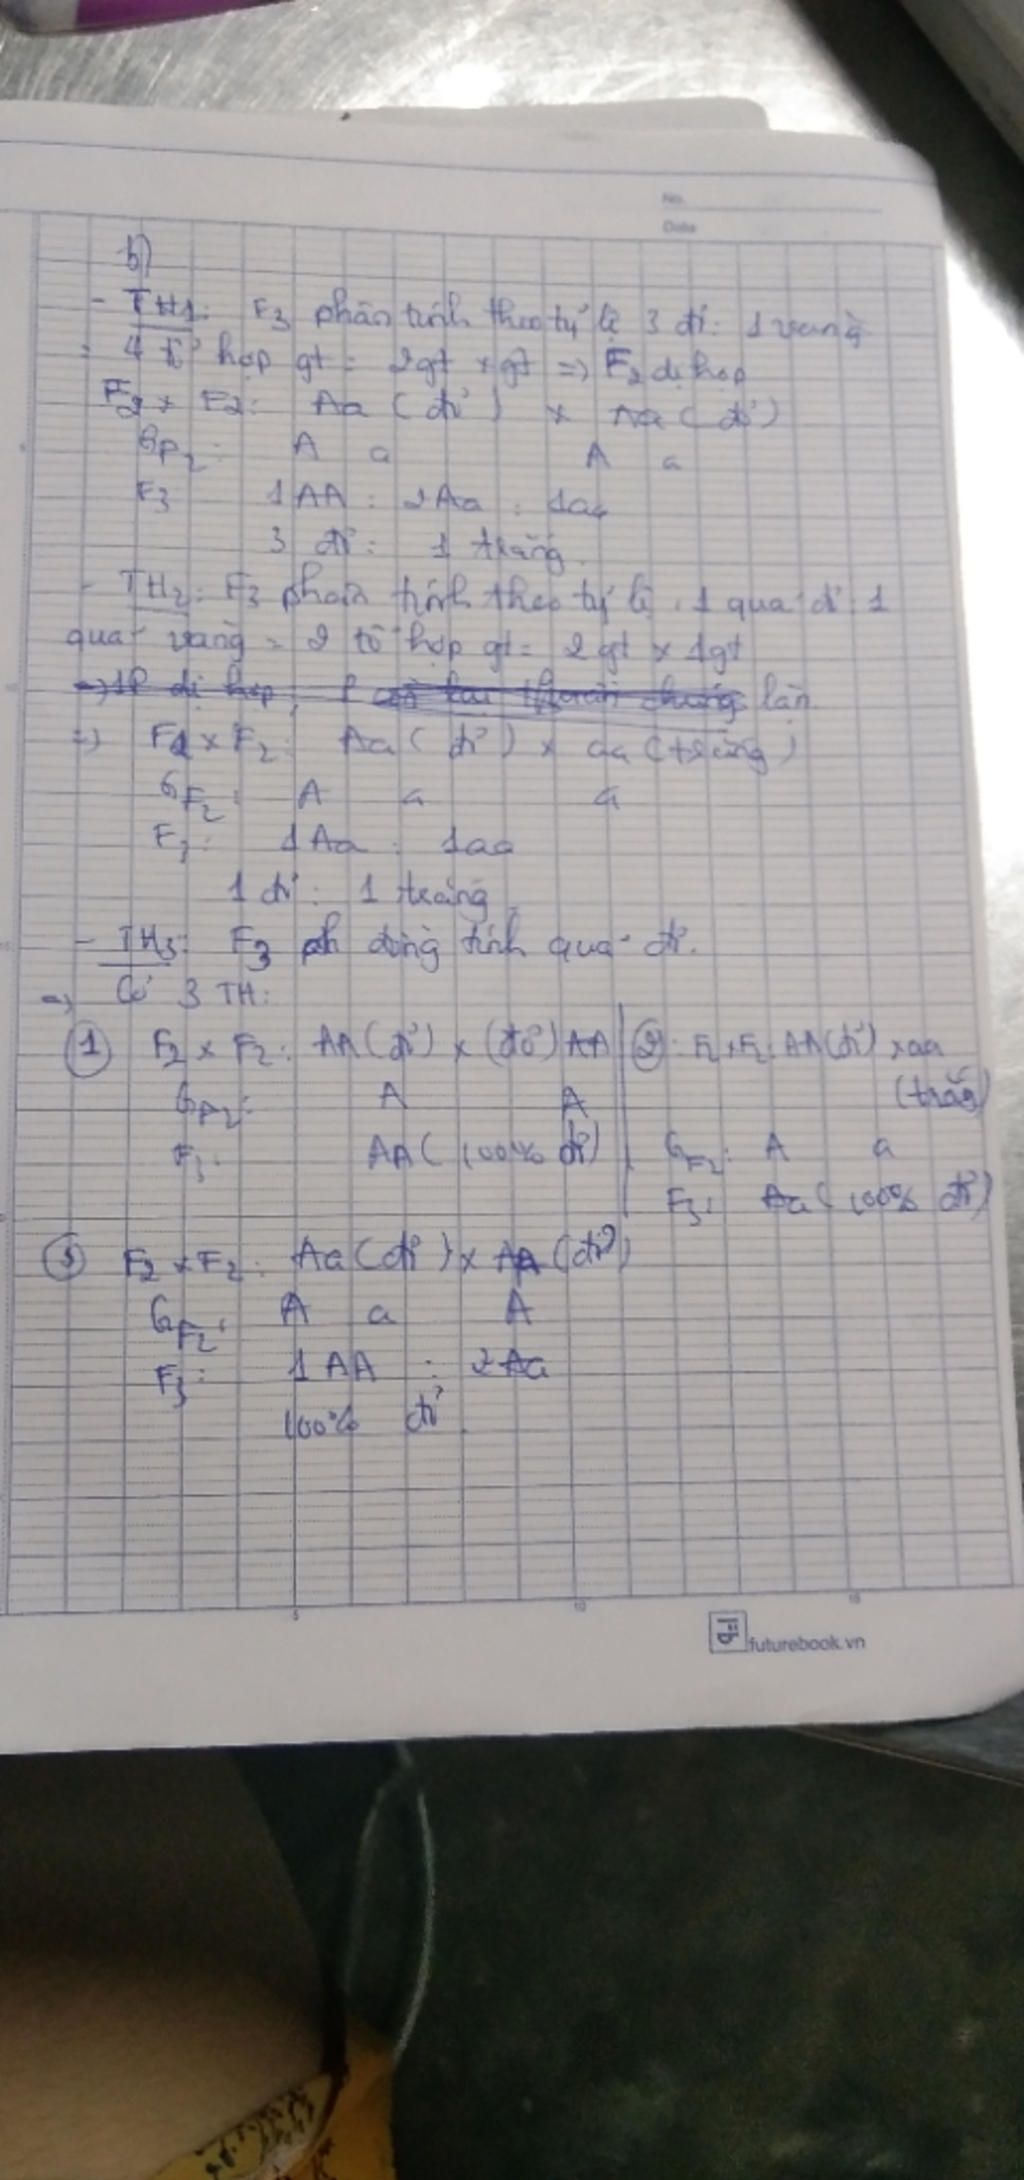 No.
Date
b)
- TH1: F3 phân tính theo tỷ lệ 3 đỏ: 1 vàng
= 4 tổ hợp gt = 2gt × gt => F2 dị hợp
F2 × F2: Aa (đỏ) × Aa (đỏ)
GP2: A a A a
F3 1AA : 2Aa : 1aa
3 đỏ: 1 trắng.
- TH2: F3 phân tính theo tỷ lệ 1 quả đỏ: 1
quả vàng = 2 tổ hợp gt = 2gt × 1gt
=> 1P dị hợp, lặn
=> F2 × F2: Aa (đỏ) × aa (trắng)
GF2: A a a
F3: 1Aa : 1aa
1 đỏ: 1 trắng
- TH3: F3 đồng tính quả đỏ.
=> Có 3 TH:
① F2 × F2: AA (đỏ) × (đỏ) AA
GP2: A A
F3: AA (100% đỏ)
②: F2 × F2: AA (đỏ) × aa
(trắng)
GF2: A a
F3: Aa (100% đỏ)
③ F2 × F2: Aa (đỏ) × AA (đỏ)
GF2: A a A
F3: 1AA : 2Aa
100% đỏ
5 10 15
futurebook.vn